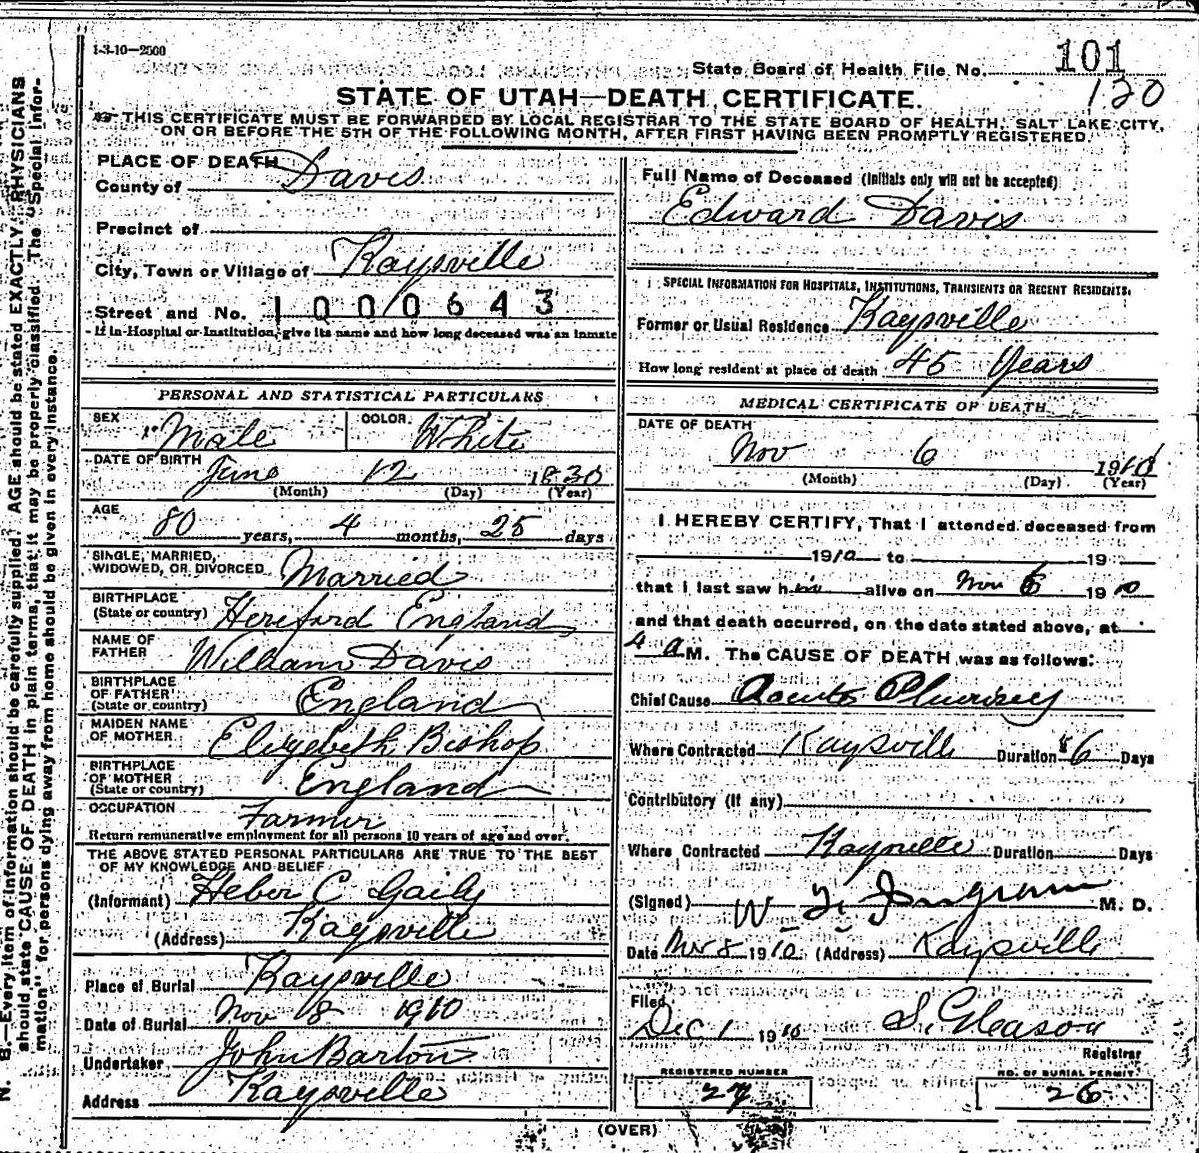 1-3-10-2500
State Board of Health File No. 101
120
STATE OF UTAH—DEATH CERTIFICATE.
THIS CERTIFICATE MUST BE FORWARDED BY LOCAL REGISTRAR TO THE STATE BOARD OF HEALTH, SALT LAKE CITY,
ON OR BEFORE THE 5TH OF THE FOLLOWING MONTH, AFTER FIRST HAVING BEEN PROMPTLY REGISTERED.
PLACE OF DEATH
County of Davis
Precinct of
City, Town or Village of Kaysville
Street and No. 1000643
If in Hospital or Institution, give its name and how long deceased was an inmate
PERSONAL AND STATISTICAL PARTICULARS
SEX Male COLOR White
DATE OF BIRTH June 12 1830
(Month) (Day) (Year)
AGE 80 years, 4 months, 25 days
SINGLE, MARRIED,
WIDOWED, OR DIVORCED Married
BIRTHPLACE
(State or country) Hereford England
NAME OF
FATHER William Davis
BIRTHPLACE
OF FATHER
(State or country) England
MAIDEN NAME
OF MOTHER Elizybeth Bishop
BIRTHPLACE
OF MOTHER
(State or country) England
OCCUPATION Farmer
Return remunerative employment for all persons 10 years of age and over.
THE ABOVE STATED PERSONAL PARTICULARS ARE TRUE TO THE BEST
OF MY KNOWLEDGE AND BELIEF
(Informant) Heber C Gaily
(Address) Kaysville
Place of Burial Kaysville
Date of Burial Nov 8 1910
Undertaker John Barton
Address Kaysville
Full Name of Deceased (Initials only will not be accepted)
Edward Davis
SPECIAL INFORMATION FOR HOSPITALS, INSTITUTIONS, TRANSIENTS OR RECENT RESIDENTS.
Former or Usual Residence Kaysville
How long resident at place of death 45 Years
MEDICAL CERTIFICATE OF DEATH
DATE OF DEATH
Nov 6 1910
(Month) (Day) (Year)
I HEREBY CERTIFY, That I attended deceased from
1910 to 19
that I last saw him alive on Nov 6 1910
and that death occurred, on the date stated above, at
4 a M. The CAUSE OF DEATH was as follows:
Chief Cause Acute Plurisey
Where Contracted Kaysville Duration 6 Days
Contributory (If any)
Where Contracted Kaysville Duration Days
(Signed) W Ingram M. D.
Date Nov 8 1910 (Address) Kaysville
Filed
Dec 1 1910 S. Gleason
Registrar
REGISTERED NUMBER NO. OF BURIAL PERMIT
27 26
(OVER)
N. B.—Every item of information should be carefully supplied. AGE should be stated EXACTLY. PHYSICIANS
should state CAUSE OF DEATH in plain terms, that it may be properly classified. The "Special Infor-
mation" for persons dying away from home should be given in every instance.